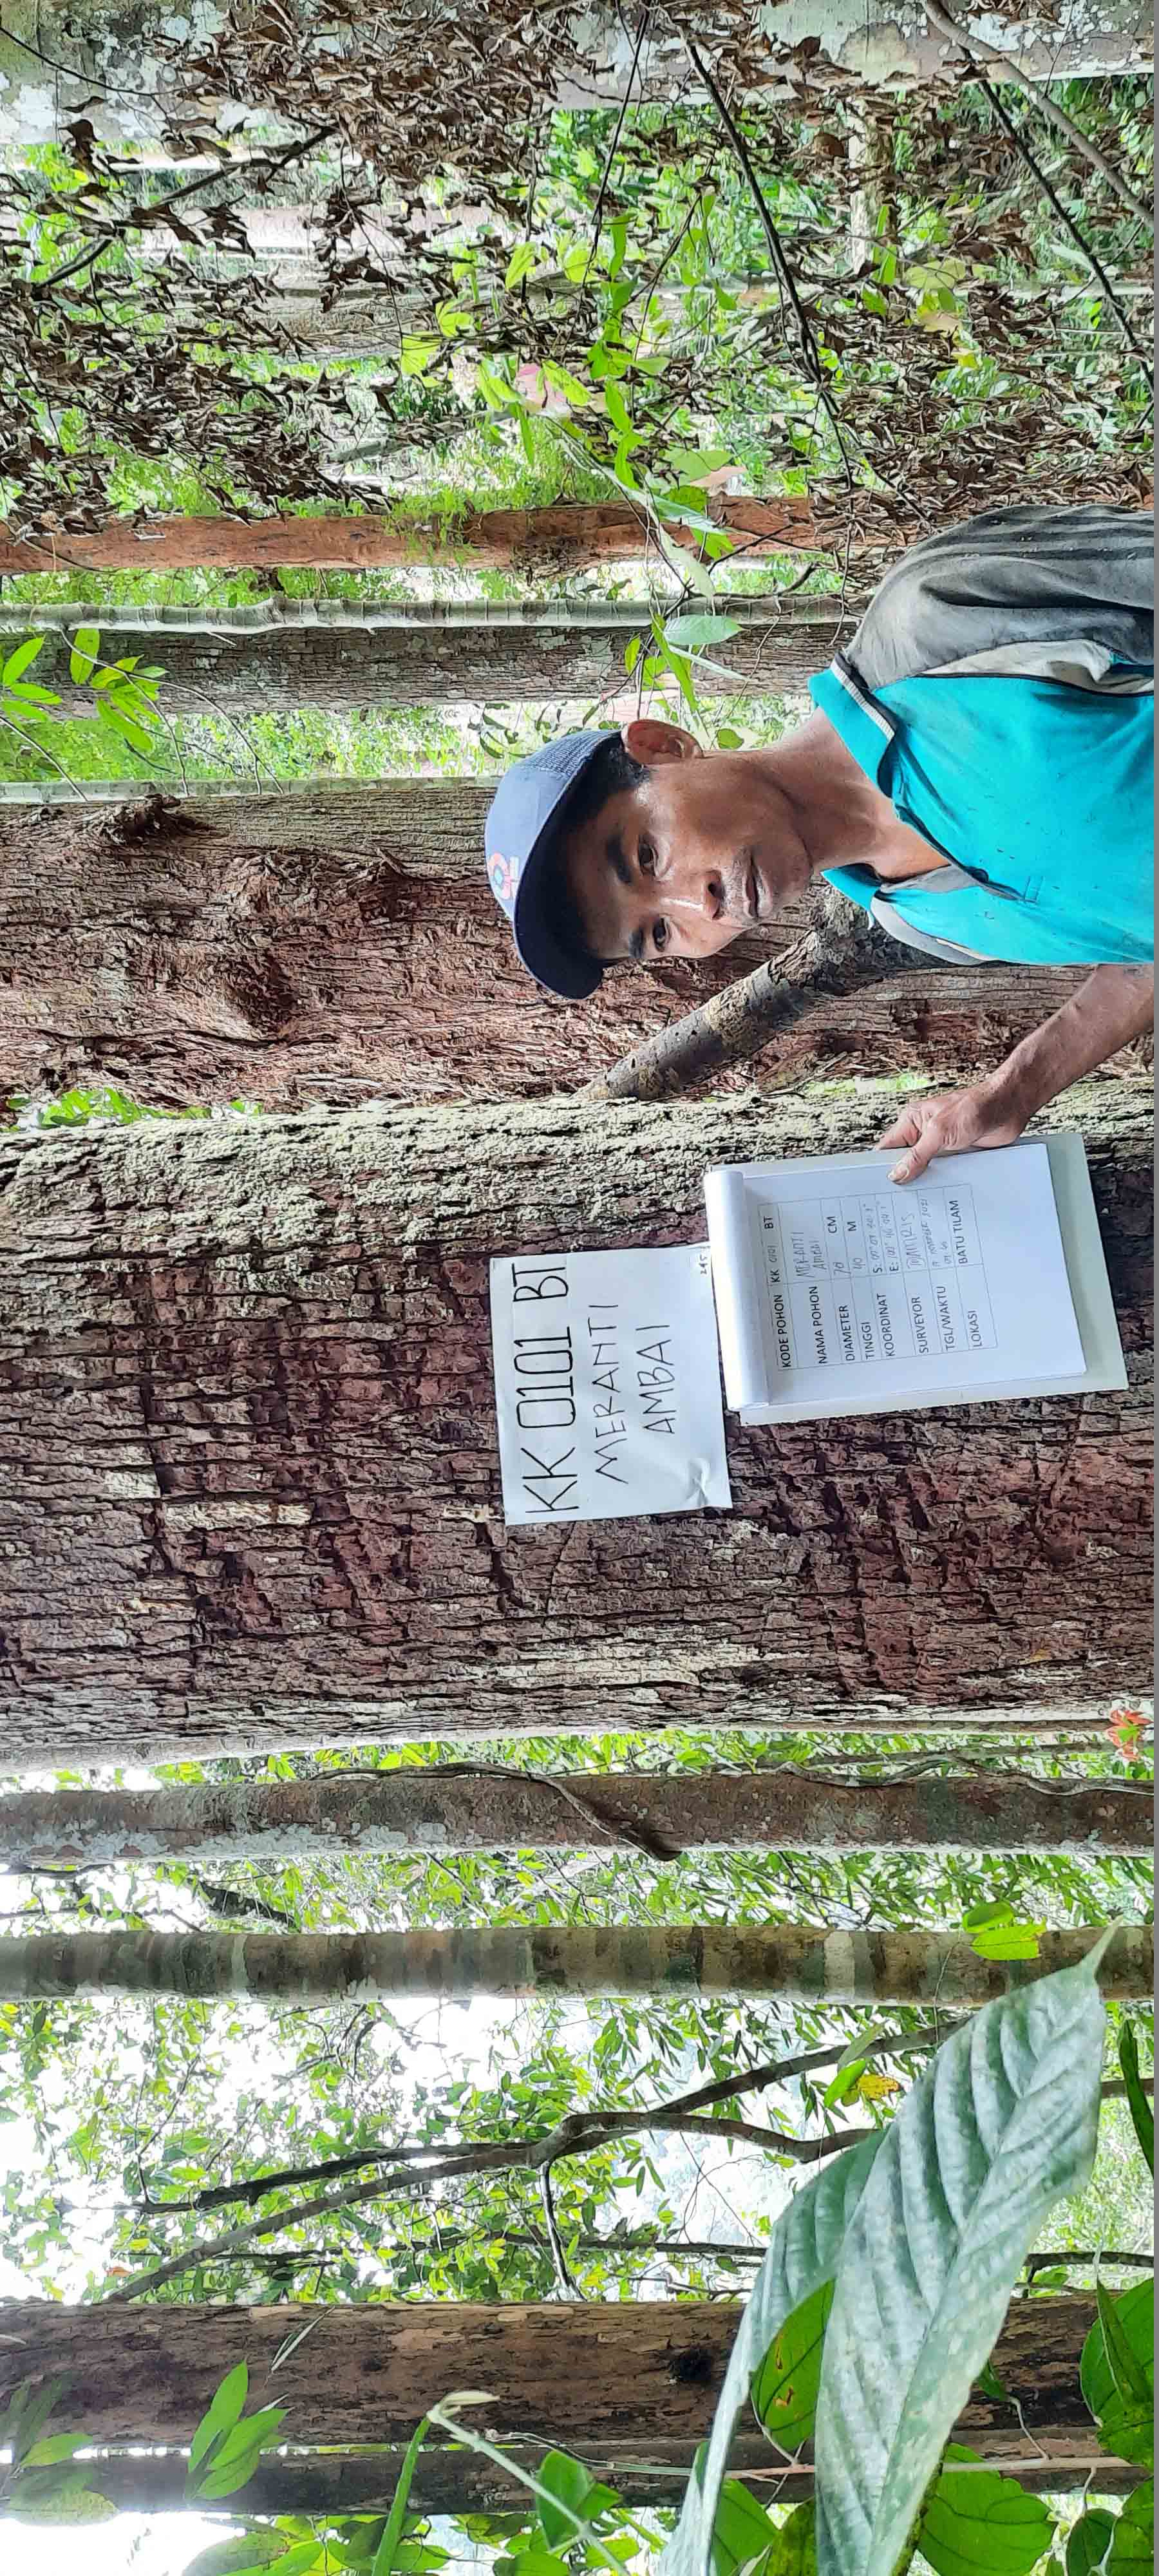 KK 0101 BT
MERANTI
AMBAI
KODE POHON KK 0101 BT
NAMA POHON MERANTI AMBAI
DIAMETER 70 CM
TINGGI 40 M
KOORDINAT S:
E:
SURVEYOR
TGL/WAKTU
LOKASI BATU TILAM